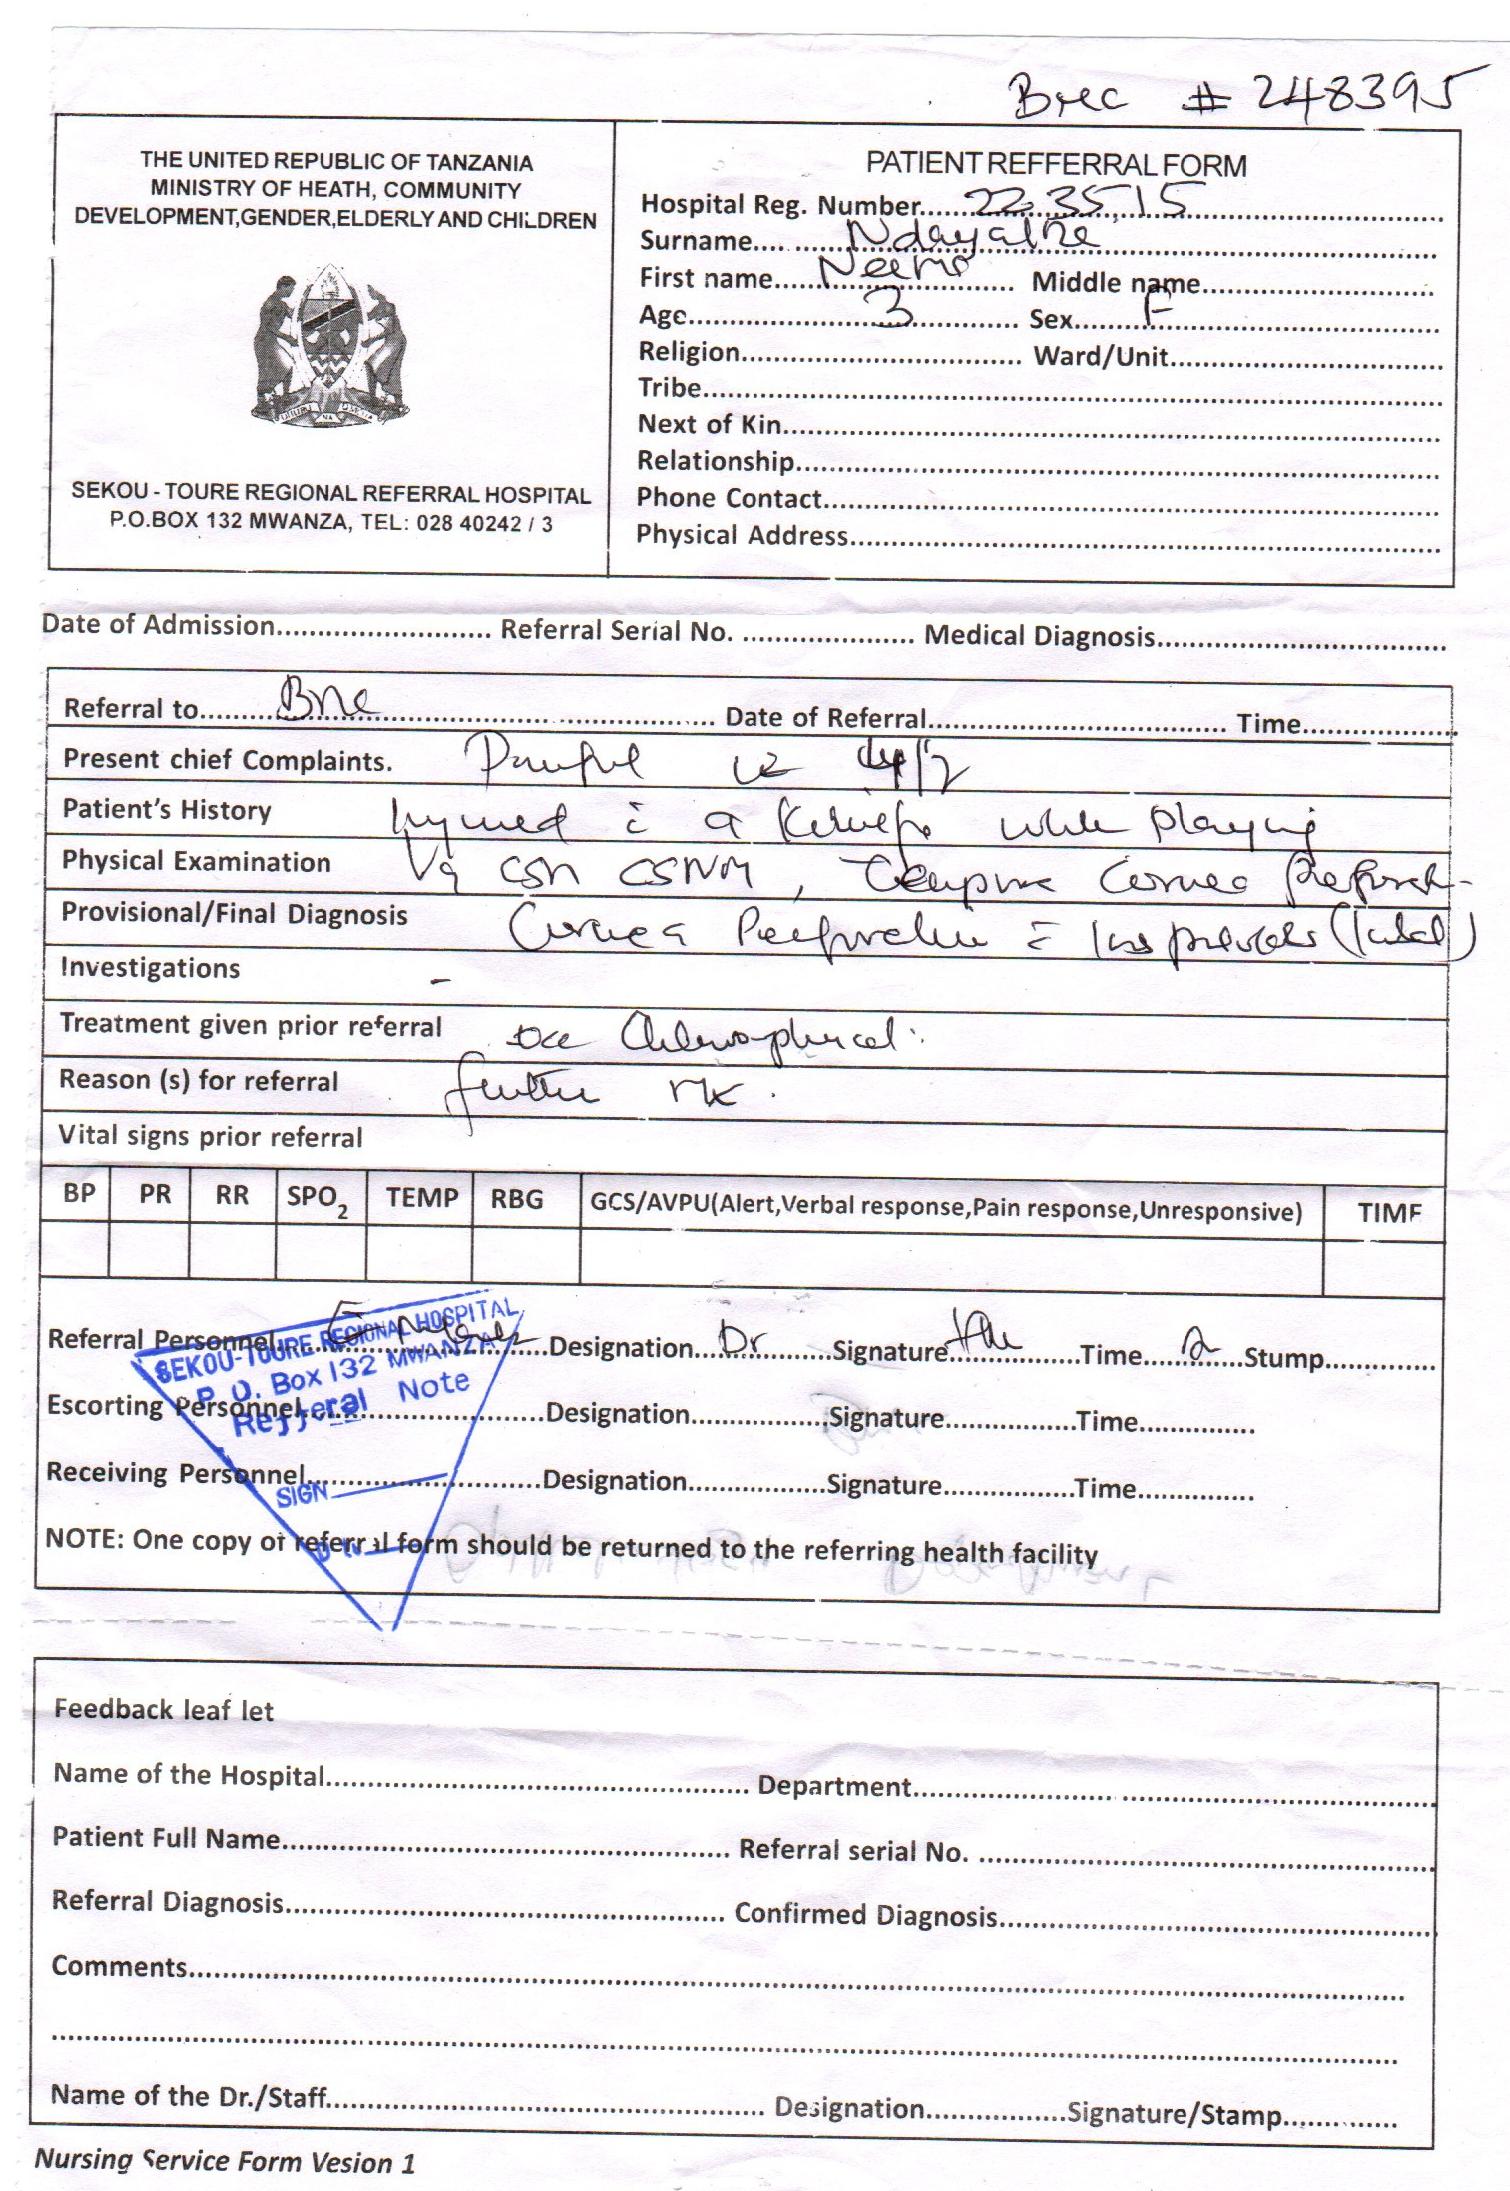 # 248395
THE UNITED REPUBLIC OF TANZANIA
MINISTRY OF HEATH, COMMUNITY
DEVELOPMENT,GENDER,ELDERLY AND CHILDREN
SEKOU - TOURE REGIONAL REFERRAL HOSPITAL
P.O.BOX 132 MWANZA, TEL: 028 40242 / 3
PATIENT REFFERRAL FORM
Hospital Reg. Number 223515
Surname
First name Middle name
Age 3 Sex F
Religion Ward/Unit
Tribe
Next of Kin
Relationship
Phone Contact
Physical Address
Date of Admission Referral Serial No. Medical Diagnosis
Referral to Date of Referral Time
Present chief Complaints. Painful
Patient's History Injured c a while playing
Physical Examination CSM, Cornea
Provisional/Final Diagnosis Cornea Perforation c
Investigations -
Treatment given prior referral
Reason (s) for referral further
Vital signs prior referral
BP PR RR SPO2 TEMP RBG GCS/AVPU(Alert,Verbal response,Pain response,Unresponsive) TIME
Referral Personnel Designation Dr Signature Time Stump
SEKOU-TOURE REGIONAL HOSPITAL
P. O. Box 132 MWANZA
Refferal Note
Escorting Personnel Designation Signature Time
Receiving Personnel Designation Signature Time
SIGN
NOTE: One copy of referral form should be returned to the referring health facility
Feedback leaf let
Name of the Hospital Department
Patient Full Name Referral serial No.
Referral Diagnosis Confirmed Diagnosis
Comments
Name of the Dr./Staff Designation Signature/Stamp
Nursing Service Form Vesion 1